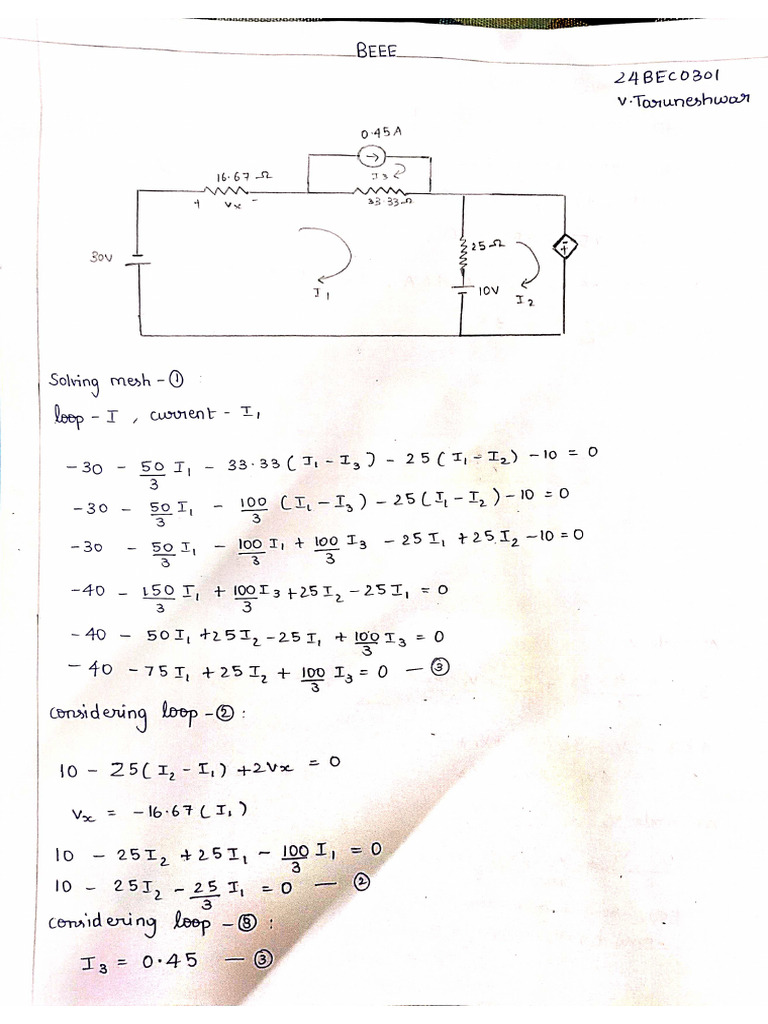 BEEE
24BEC0301
V.Taruneshwar
0.45A
16.67Ω
I3
+ Vx -
33.33Ω
30V
25Ω
10V
I1
I2
Solving mesh - ①
loop - I , current - I1
-30 - 50/3 I1 - 33.33 ( I1 - I3 ) - 25 ( I1 - I2 ) - 10 = 0
-30 - 50/3 I1 - 100/3 (I1 - I3 ) - 25 (I1 - I2 ) - 10 = 0
-30 - 50/3 I1 - 100/3 I1 + 100/3 I3 - 25 I1 + 25 I2 - 10 = 0
-40 - 150/3 I1 + 100/3 I3 + 25 I2 - 25 I1 = 0
-40 - 50 I1 + 25 I2 - 25 I1 + 100/3 I3 = 0
-40 - 75 I1 + 25 I2 + 100/3 I3 = 0 — ③
considering loop - ② :
10 - 25 ( I2 - I1 ) + 2Vx = 0
Vx = -16.67 ( I1 )
10 - 25 I2 + 25 I1 - 100/3 I1 = 0
10 - 25 I2 - 25/3 I1 = 0 — ②
considering loop - ③ :
I3 = 0.45 — ③